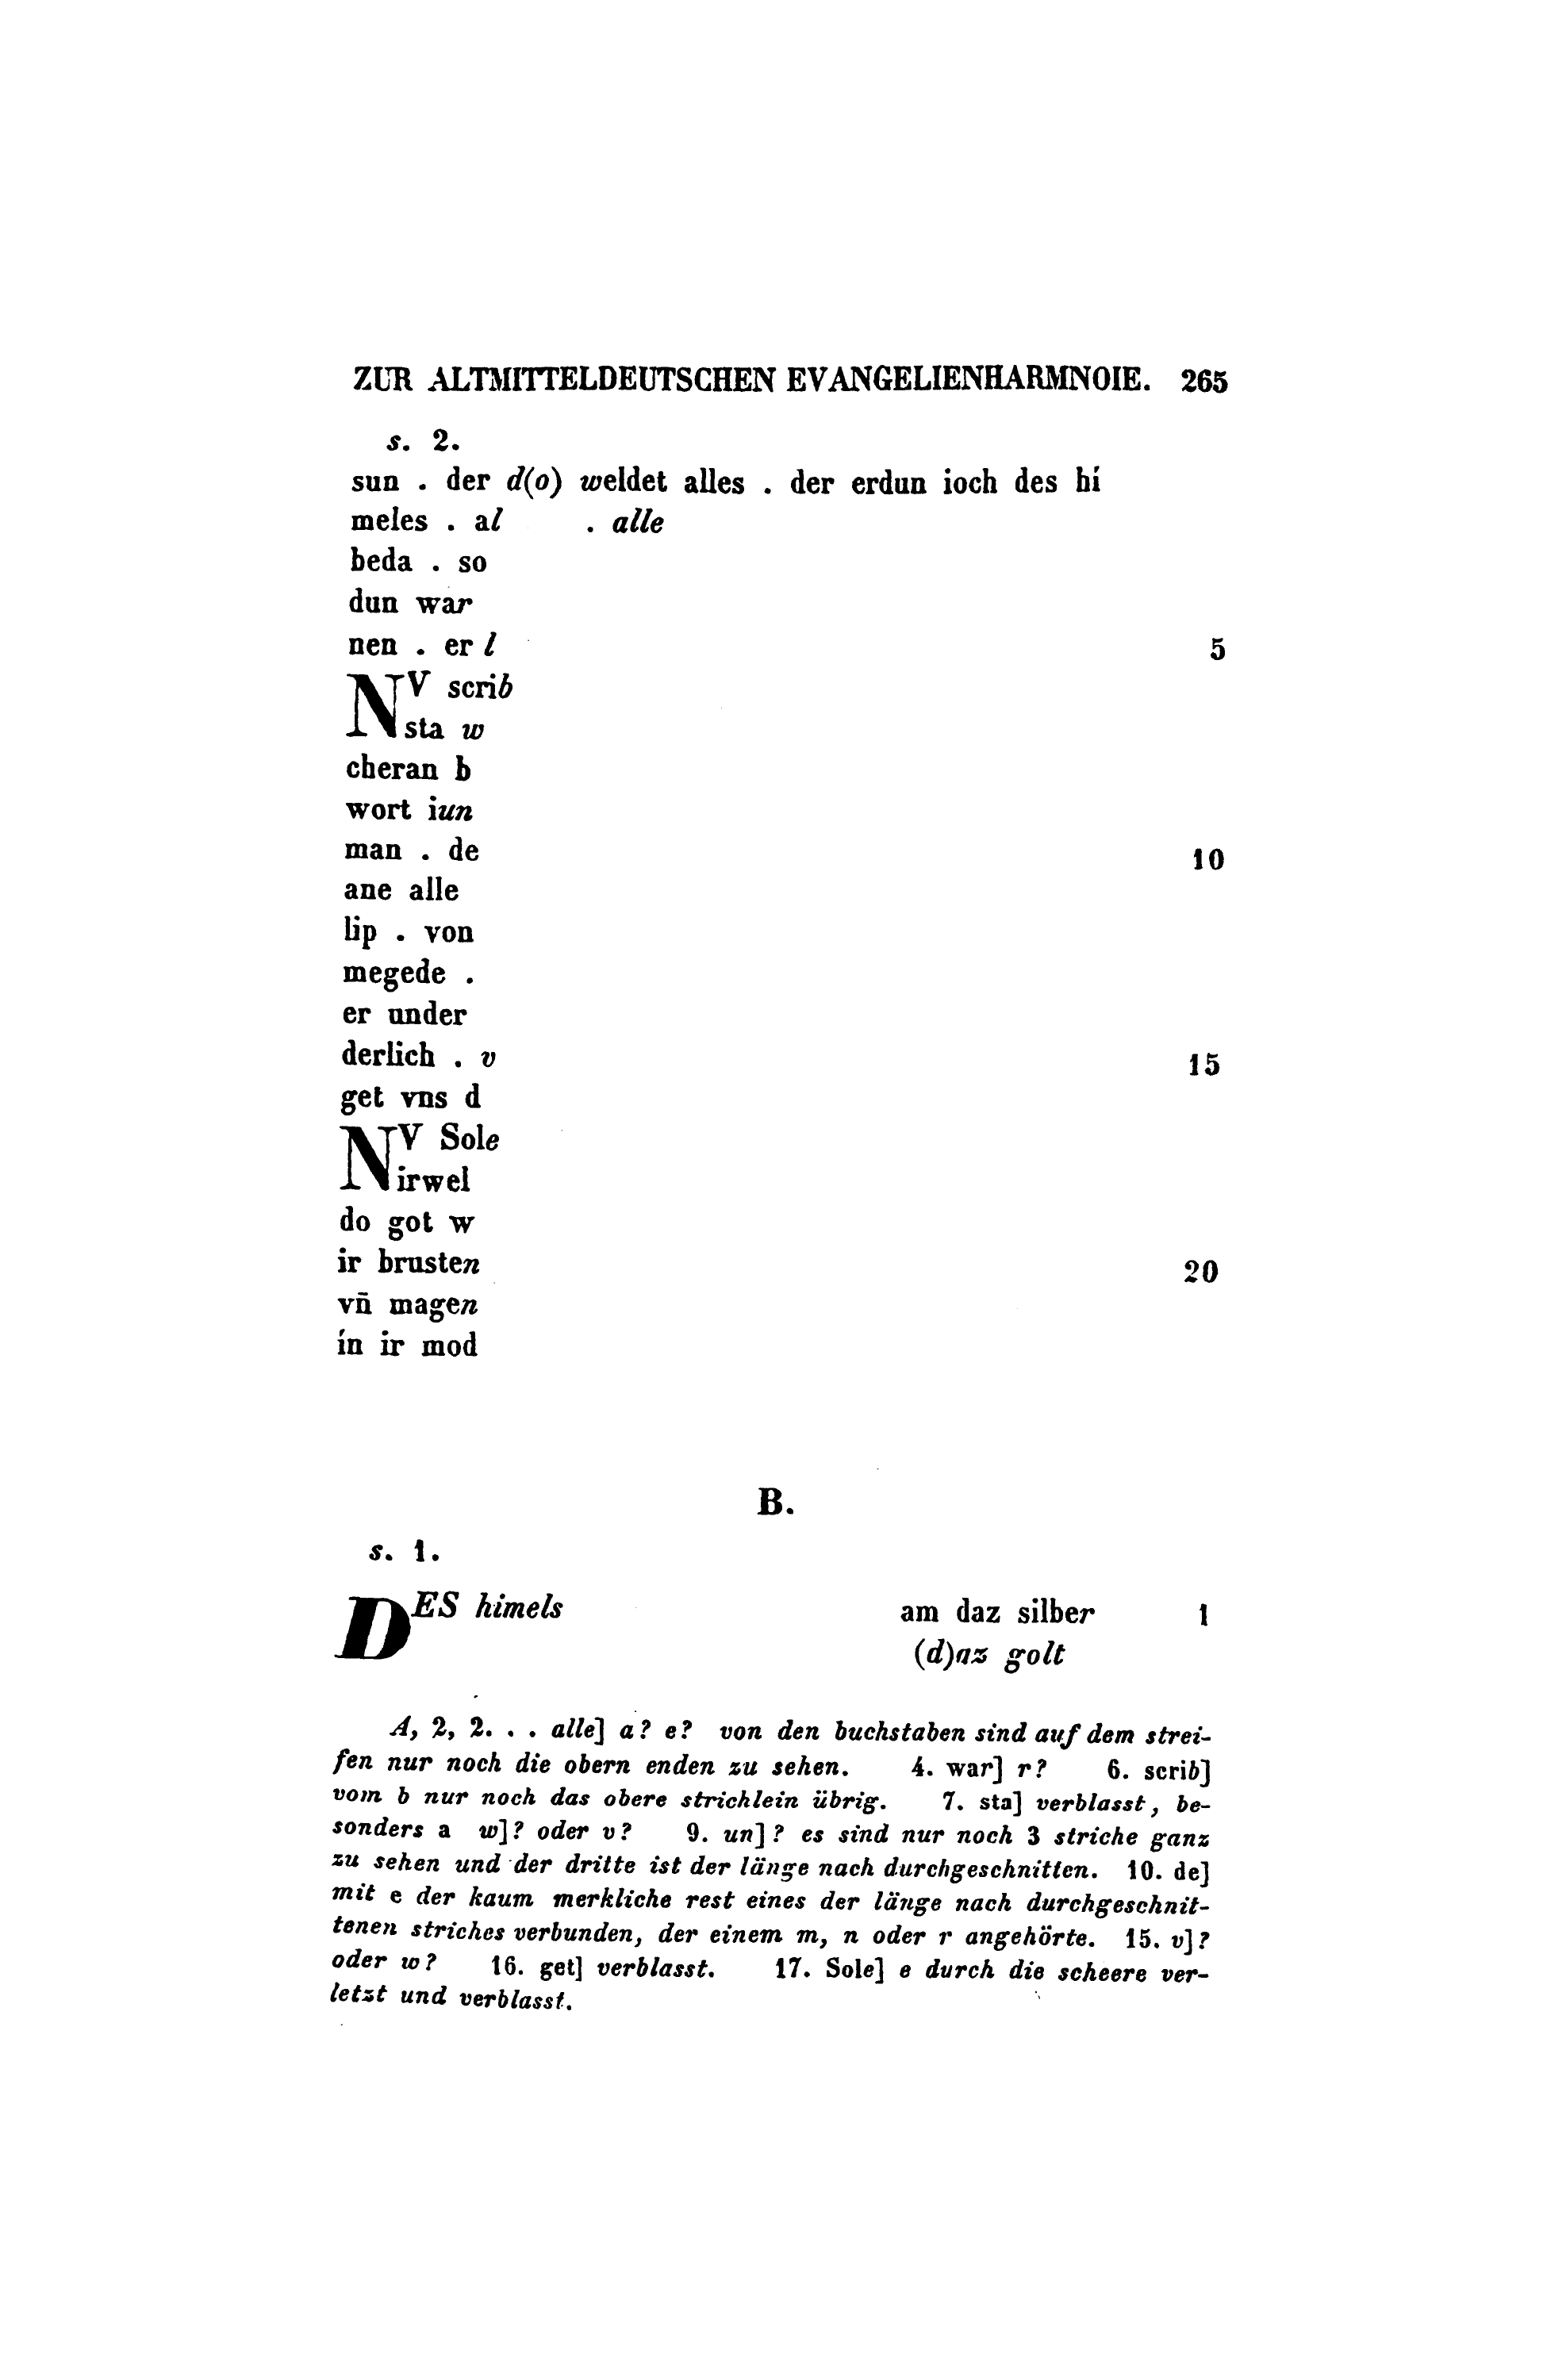 ZUR ALTMITTELDEUTSCHEN EVANGELIENHARMNOIE. 265
s. 2.
sun . der d(o) weldet alles . der erdun ioch des hí
meles . al . alle
beda . so
dun war
nen . er l 5
NV scrib
sta w
cheran b
wort iun
man . de 10
ane alle
lip . von
megede .
er under
derlich . v 15
get vns d
NV Sole
irwel
do got w
ir brusten 20
vn̄ magen
ín ir mod
B.
s. 1.
DES himels am daz silber 1
(d)az golt
A, 2, 2. . . alle] a? e? von den buchstaben sind auf dem strei-
fen nur noch die obern enden zu sehen. 4. war] r? 6. scrib]
vom b nur noch das obere strichlein übrig. 7. sta] verblasst, be-
sonders a w]? oder v? 9. un]? es sind nur noch 3 striche ganz
zu sehen und der dritte ist der länge nach durchgeschnitten. 10. de]
mit e der kaum merkliche rest eines der länge nach durchgeschnit-
tenen striches verbunden, der einem m, n oder r angehörte. 15. v]?
oder w? 16. get] verblasst. 17. Sole] e durch die scheere ver-
letzt und verblasst.